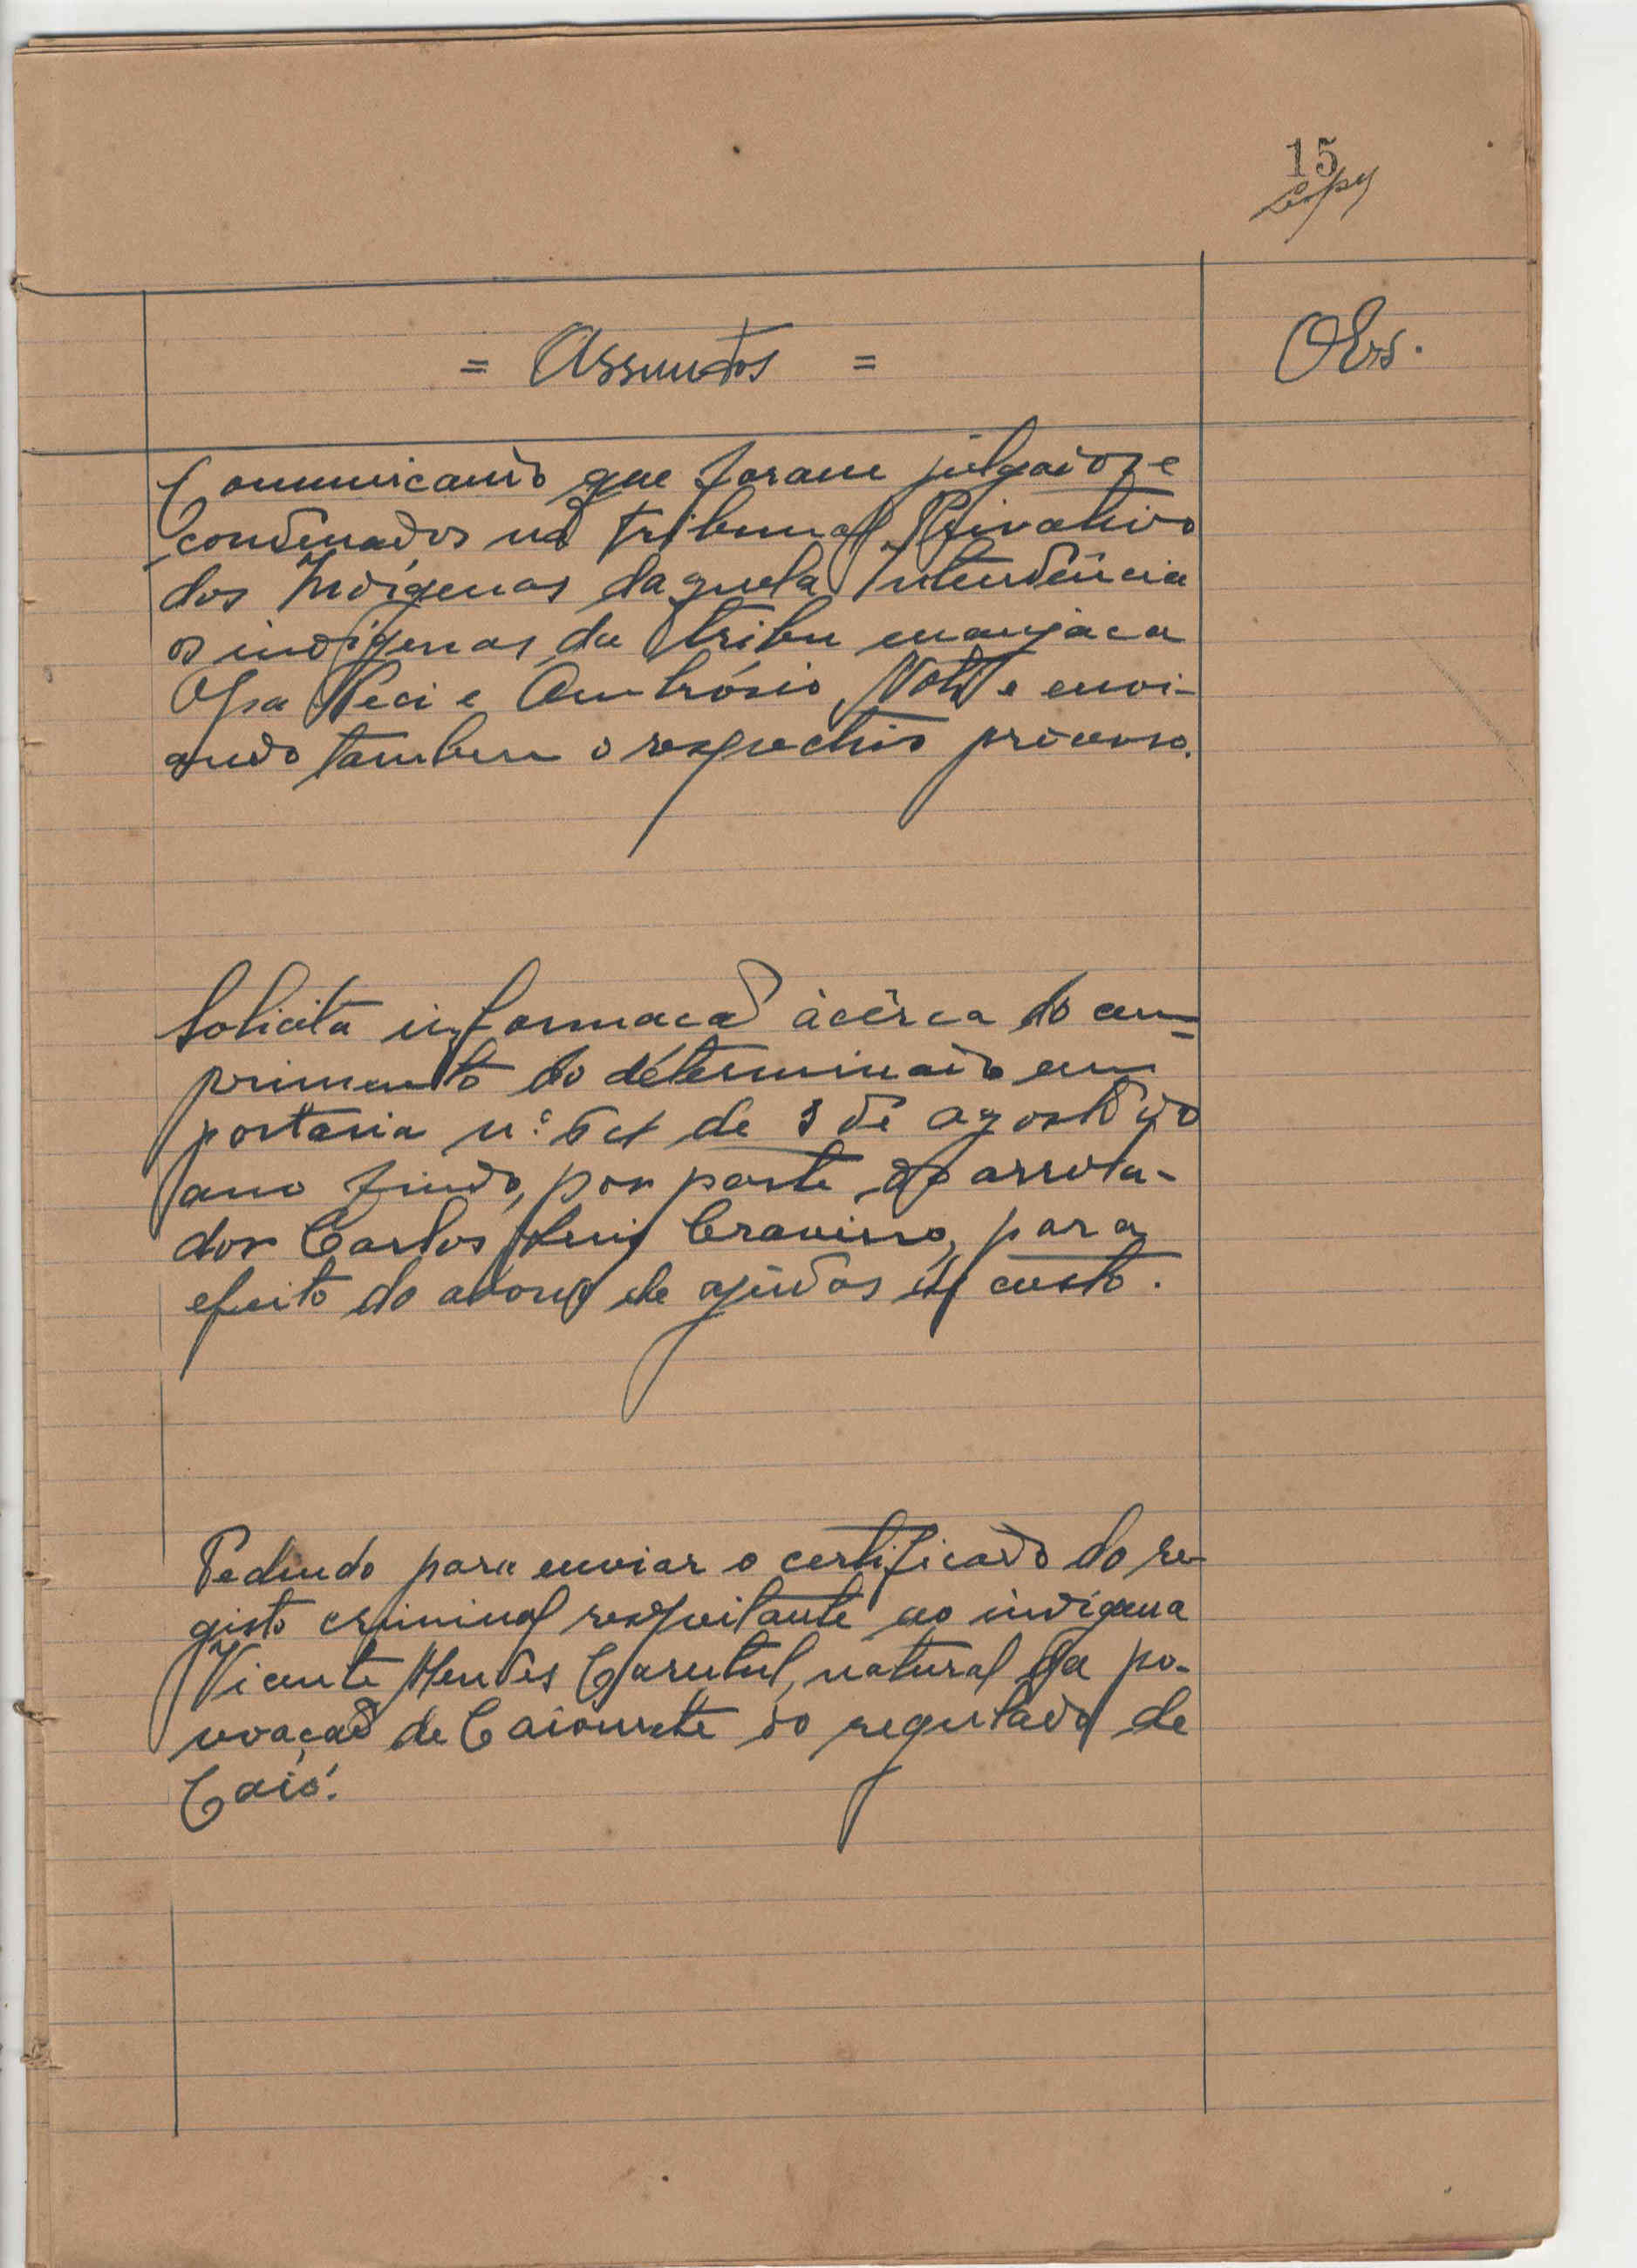 15
= Assuntos =
Obs.
Comunicando que foram julgados e
condenados no Tribunal Privativo
dos Indígenas daquela Intendência
os indígenas da tribu manjaca
e Ambrósio e envi-
ando tambem o respectivo processo.
Solicita informacão àcêrca do cum=
primento do determinado em
portaria n.º de de agosto do
ano findo, por parte do arrola-
dor Carlos Luis Craveiro, para
efeito do abono de ajudas de custo.
Pedindo para enviar o certificado do re-
gisto criminal respeitante ao indígena
Vicente Mendes natural da po-
voação de do regulado de
Caió.